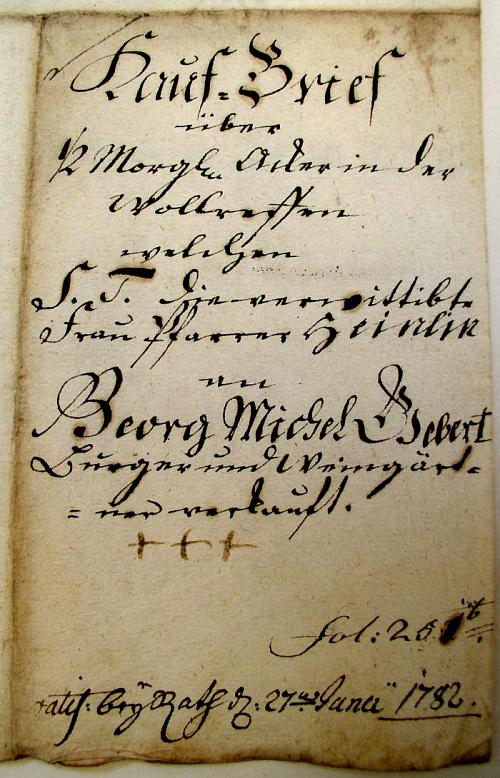 Kauf-Brief
über
1/2 Morgln Acker in der
Wollreffen
welchen
S. T. die verwittibte
Frau Pfarrer Heinlin
an
Georg Michel Gebert
Burger und Weingärt-
= ner verkauft.
+ + +
fol: 25
ratif: bey Rath d: 27ten 1782.